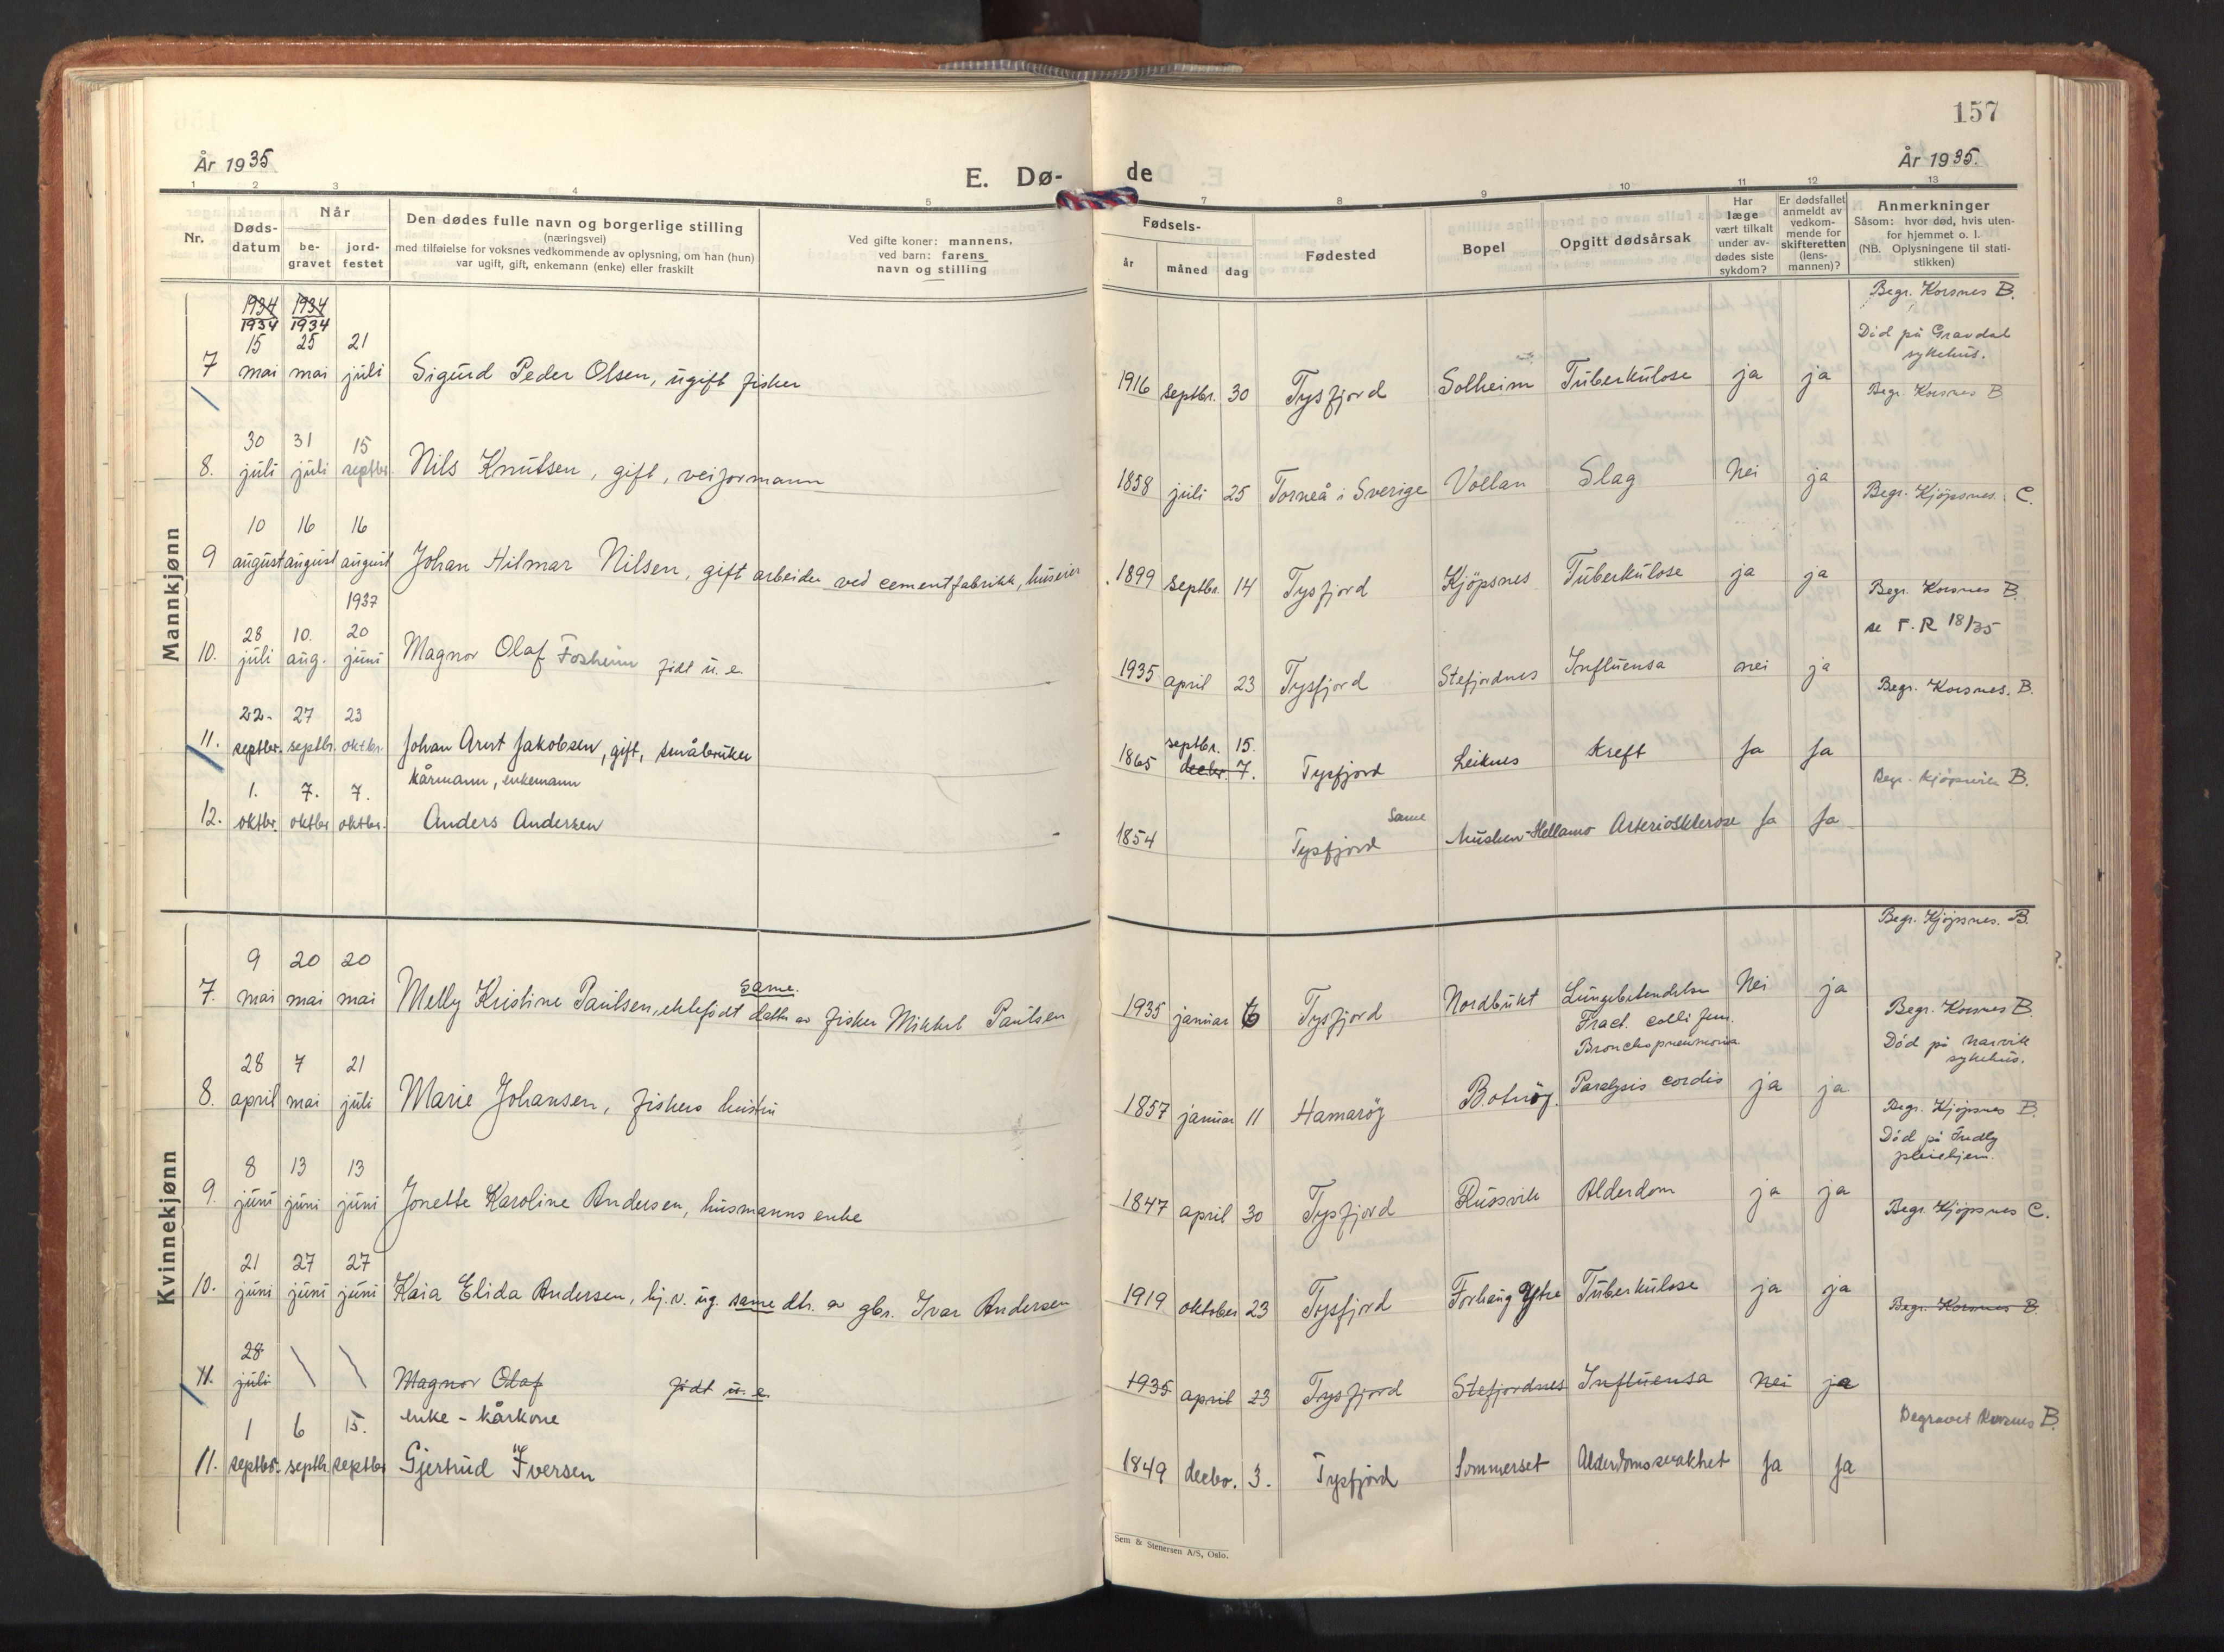 157
År 1935
År 1935.
E. Dø-
de
1 2 3 4 5 7 8 9 10 11 12 13
Nr.
Døds-
datum
Når
be-
gravet
jord-
festet
Den dødes fulle navn og borgerlige stilling
(næringsvei)
med tilføielse for voksnes vedkommende av oplysning, om han (hun)
var ugift, gift, enkemann (enke) eller fraskilt
Ved gifte koner: mannens,
ved barn: farens
navn og stilling
Fødsels-
år
måned
dag
Fødested
Bopel
Opgitt dødsårsak
Har
læge
vært tilkalt
under av-
dødes siste
sykdom?
Er dødsfallet
anmeldt av
vedkom-
mende for
skifteretten
(lens-
mannen)?
Anmerkninger
Såsom: hvor død, hvis uten-
for hjemmet o. l.
(NB. Oplysningene til stati-
stikken)
Mannkjønn
1934 1934
1934 1934
15 25 21
7 mai mai juli Sigurd Peder Olsen, ugift fisker
1916 septbr. 30 Tysfjord Solheim Tuberkulose ja ja
Begr. Korsnes B.
Död på Gravdal
sykehus.
30 31 15
8. juli juli septbr. Nils Knutsen, gift, veiformann
1858 juli 25 Torneå i Sverige Vollan Slag Nei ja
Begr. Korsnes B
10 16 16
9 august august august Johan Hilmar Nilsen, gift arbeider ved cementfabrikk, huseier
1899 septbr. 14 Tysfjord Kjöpsnes Tuberkulose ja ja
Begr. Kjöpsnes. C.
1937
28 10. 20
10. juli aug. juni Magnor Olaf Fosheim födt u. e.
1935 april 23 Tysfjord Stefjordnes Influensa nei ja
Begr. Korsnes B.
se F.R 18/35
22. 27 23
11. septbr. septbr. oktbr. Johan Arnt Jakobsen, gift, småbruker
septbr. 15.
1865 decbr. 7. Tysfjord Leiknes Kreft Ja Ja
Begr. Korsnes. B.
kårmann, enkemann
1. 7. 7.
12. oktbr. oktbr oktbr. Anders Andersen
Same
1854 Tysfjord Musken-Hellamo Arteriosklerose Ja Ja
Begr. Kjöpsvik B.
Kvinnekjønn
9 20 20
same.
7. mai mai mai Melly Kristine Paulsen, ektefödt datter av fisker Mikkel Paulsen
1935 januar 6 Tysfjord Nordbukt Lungebetendelse Nei ja
Begr. Kjöpsnes. B.
28 7 21
8. april mai juli Marie Johansen, fiskers hustru
Fract. colli fem.
Bronchopneumonia
1857 januar 11 Hamaröy Botnöy. Paralysis cordis ja ja
Begr. Korsnes B.
Död på Narvik
sykehus.
8 13 13
9. juni juni juni Jonette Karoline Andersen, husmanns enke
1847 april 30 Tysfjord Russvik Alderdom ja ja
Begr. Kjöpsnes B.
Död på Fredly
pleiehjem.
21 27 27
10. juni juni juni Kaia Elida Andersen, hj.v. ug. same dtr. av gbr. Ivar Andersen
1919 oktober 23 Tysfjord Forhaug Ytre Tuberkulose ja ja
Begr. Kjöpsnes C.
28
11. juli Magnor Olaf födt u. e.
1935 april 23 Tysfjord Stefjordnes Influensa Nei ja
Begr. Korsnes B.
enke - kårkone
1 6 15.
11. septbr. septbr. septbr Gjertrud Iversen
1849 decbr. 3. Tysfjord Sommerset Alderdomssvakhet Ja Ja
Begravet Korsnes B.
Sem & Stenersen A/S, Oslo.